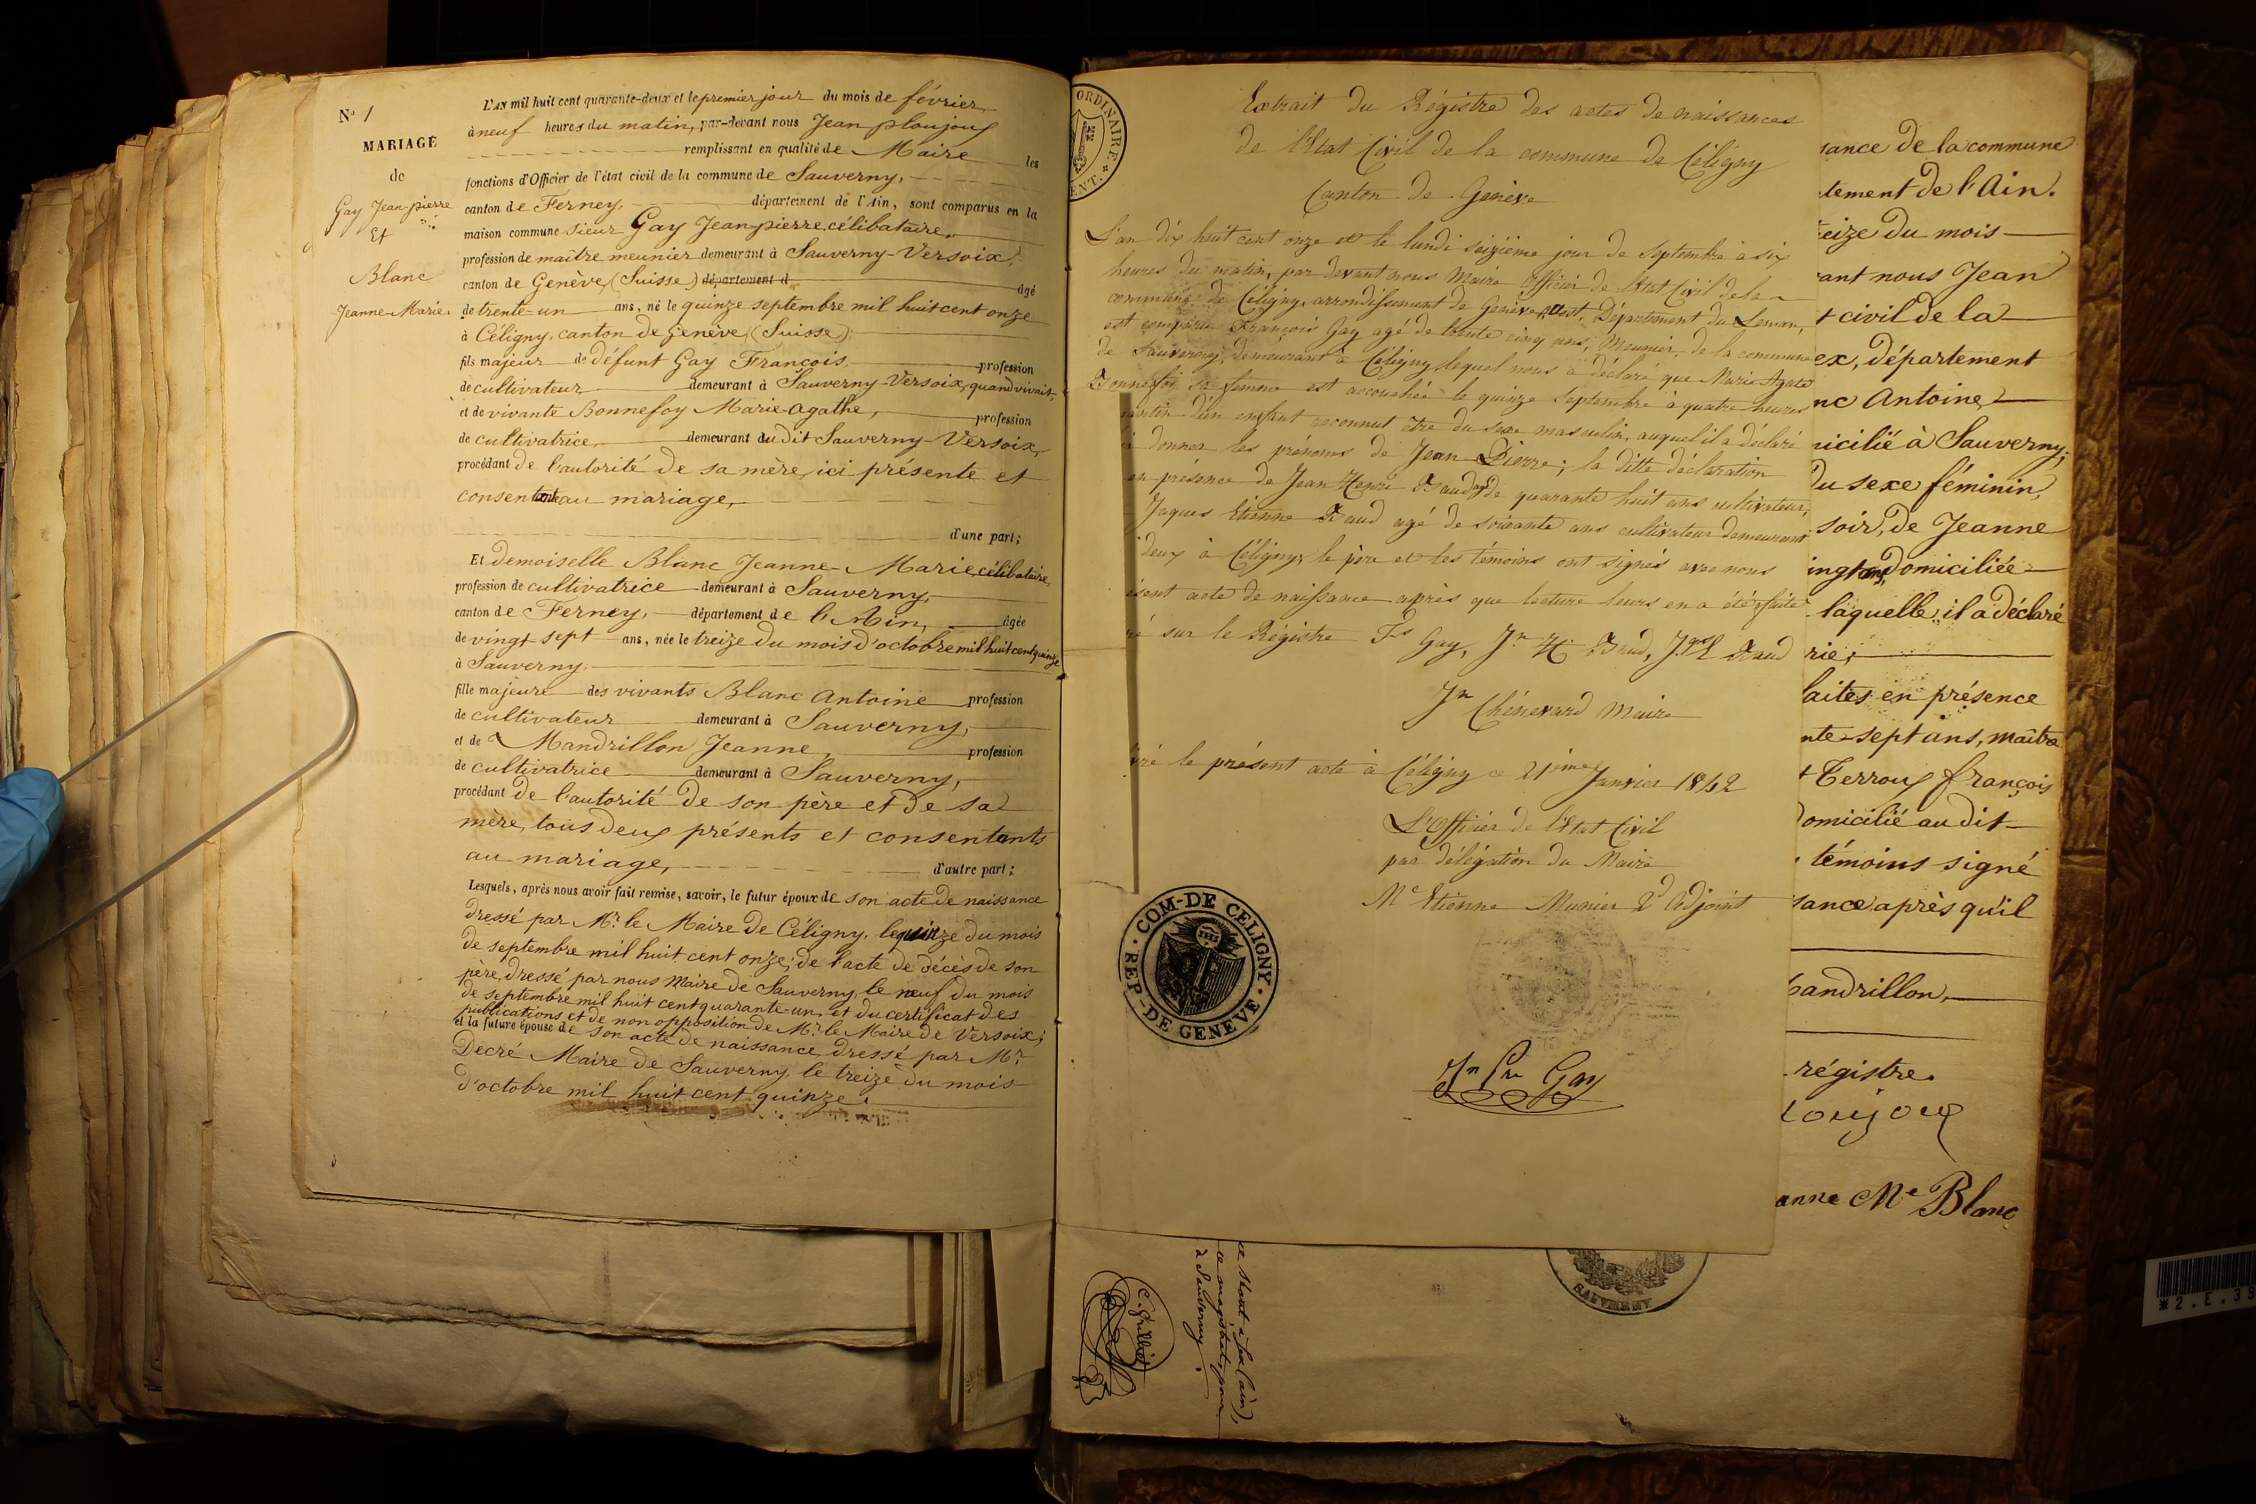 N° 1
MARIAGE
de
Gay Jean-pierre
Et
Blanc
Jeanne-Marie.
L'AN mil huit cent quarante-deux et le premier jour du mois de février
à neuf heures du matin, par-devant nous Jean ploujoux
remplissant en qualité de Maire les
fonctions d'Officier de l'état civil de la commune de Sauverny,
canton de Ferney, département de l'Ain, sont comparus en la
maison commune sieur Gay Jean-pierre, célibataire,
profession de maître meunier demeurant à Sauverny-Versoix,
canton de Genève, (Suisse) département d âgé
de trente-un ans, né le quinze septembre mil huit cent onze
à Céligny, canton de Genève (Suisse);
fils majeur de défunt Gay François, profession
de cultivateur demeurant à Sauverny-Versoix, quand vivait,
et de vivante Bonnefoy Marie-agathe, profession
de cultivatrice, demeurant au dit Sauverny-Versoix,
procédant de l'autorité de sa mère, ici présente et
consentante au mariage,
d'une part;
Et demoiselle Blanc Jeanne-Marie, célibataire,
profession de cultivatrice demeurant à Sauverny,
canton de Ferney, département de l'Ain, âgée
de vingt sept ans, née le treize du mois d'octobre mil huit cent quinze
à Sauverny,
fille majeure des vivants Blanc antoine profession
de cultivateur demeurant à Sauverny,
et de Mandrillon Jeanne, profession
de cultivatrice demeurant à Sauverny,
procédant de l'autorité de son père et de sa
mère, tous deux présents et consentants
au mariage,
d'autre part;
Lesquels, après nous avoir fait remise, savoir, le futur époux de son acte de naissance
dressé par Mr. le Maire de Céligny, le quinze du mois
de septembre mil huit cent onze; de l'acte de décès de son
père, dressé par nous Maire de Sauverny, le neuf du mois
de septembre mil huit cent quarante-un, et du certificat des
publications et de non opposition de Mr. le Maire de Versoix;
et la future épouse de son acte de naissance dressé par Mr.
Decré Maire de Sauverny, le treize du mois
d'octobre mil huit cent quinze.
ORDINAIRE
Extrait du Régistre des actes de naissances
de l'Etat Civil de la commune de Céligny
Canton de Genève
L'an dix huit cent onze et le lundi seizième jour de Septembre à six
heures du matin, par devant nous Maire Officier de l'Etat Civil de la
commune de Céligny, arrondissement de Genève, Ouest, Département du Leman,
est comparu François Gay agé de trente cinq ans, Meunier, de la commune
de Sauverny, demeurant à Céligny, lequel nous a déclaré que Marie Agate
Bonnefoi sa femme est accouchée le quinze Septembre à quatre heures
matin d'un enfant reconnut être du sexe masculin, auquel il a déclaré
donner les prénoms de Jean Pierre; la dite déclaration
en présence de Jean Henri agé de quarante huit ans cultivateur,
Jaques Etienne agé de soixante ans cultivateur demeurant
deux à Céligny, le père et les témoins ont signés avec nous
acte de naissance après que lecture leurs en a été faite
sur le Régistre Fs Gay,
Jn Chénevard Maire
le présent acte à Céligny ce 21ime Janvier 1842
L'Officier de l'Etat Civil
par délégation du Maire
Me Etienne Munier 2d Adjoint
COM-DE CELIGNY. REP-DE GENEVE
Jn Pre Gay
de la commune
de l'Ain.
du mois
nous Jean
civil de la
ex, département
Antoine
à Sauverny;
du sexe féminin,
soir, de Jeanne
domiciliée
laquelle il a déclaré
rie;
en présence
sept ans, maître
Terroux françois
domicilié au dit
témoins signé
après qu'il
régistre.
Me Blanc
SAUVERNY
à Sauverny.
*2.E.39